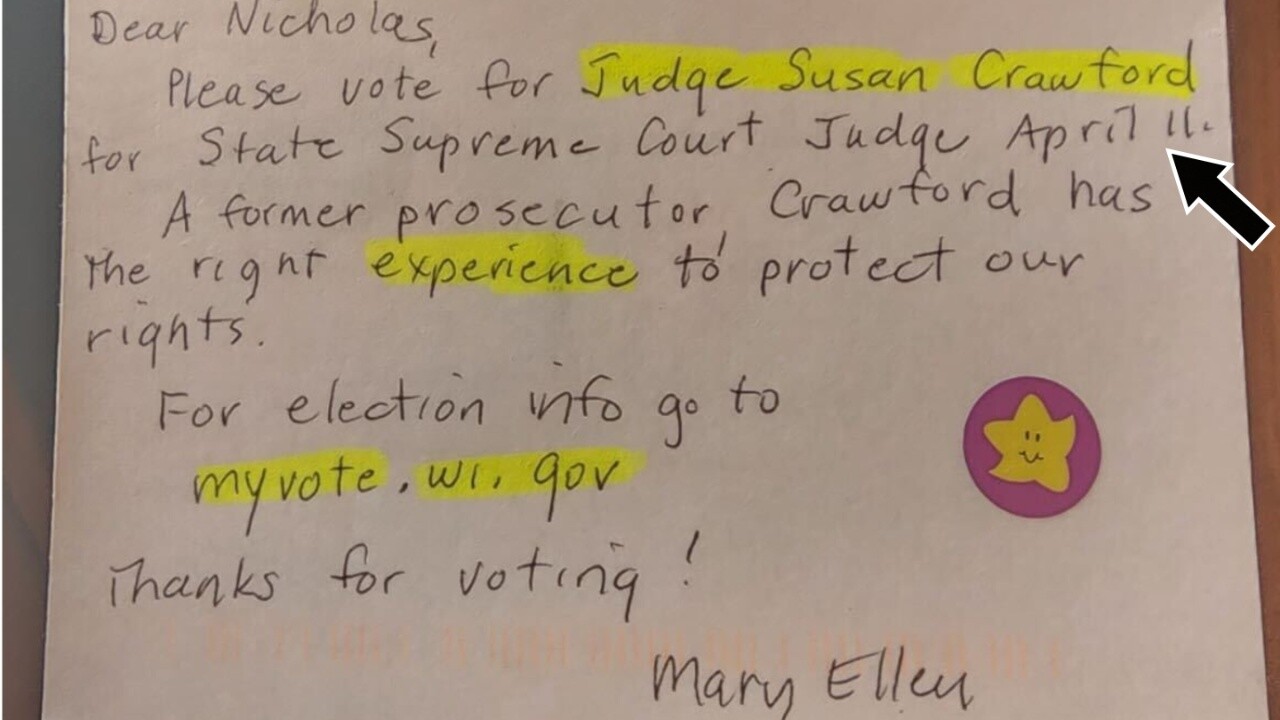 Dear Nicholas,
Please vote for Judge Susan Crawford
for State Supreme Court Judge April 11.
A former prosecutor, Crawford has
the right experience to protect our
rights.
For election info go to
myvote.wi.gov
Thanks for voting!
Mary Ellen